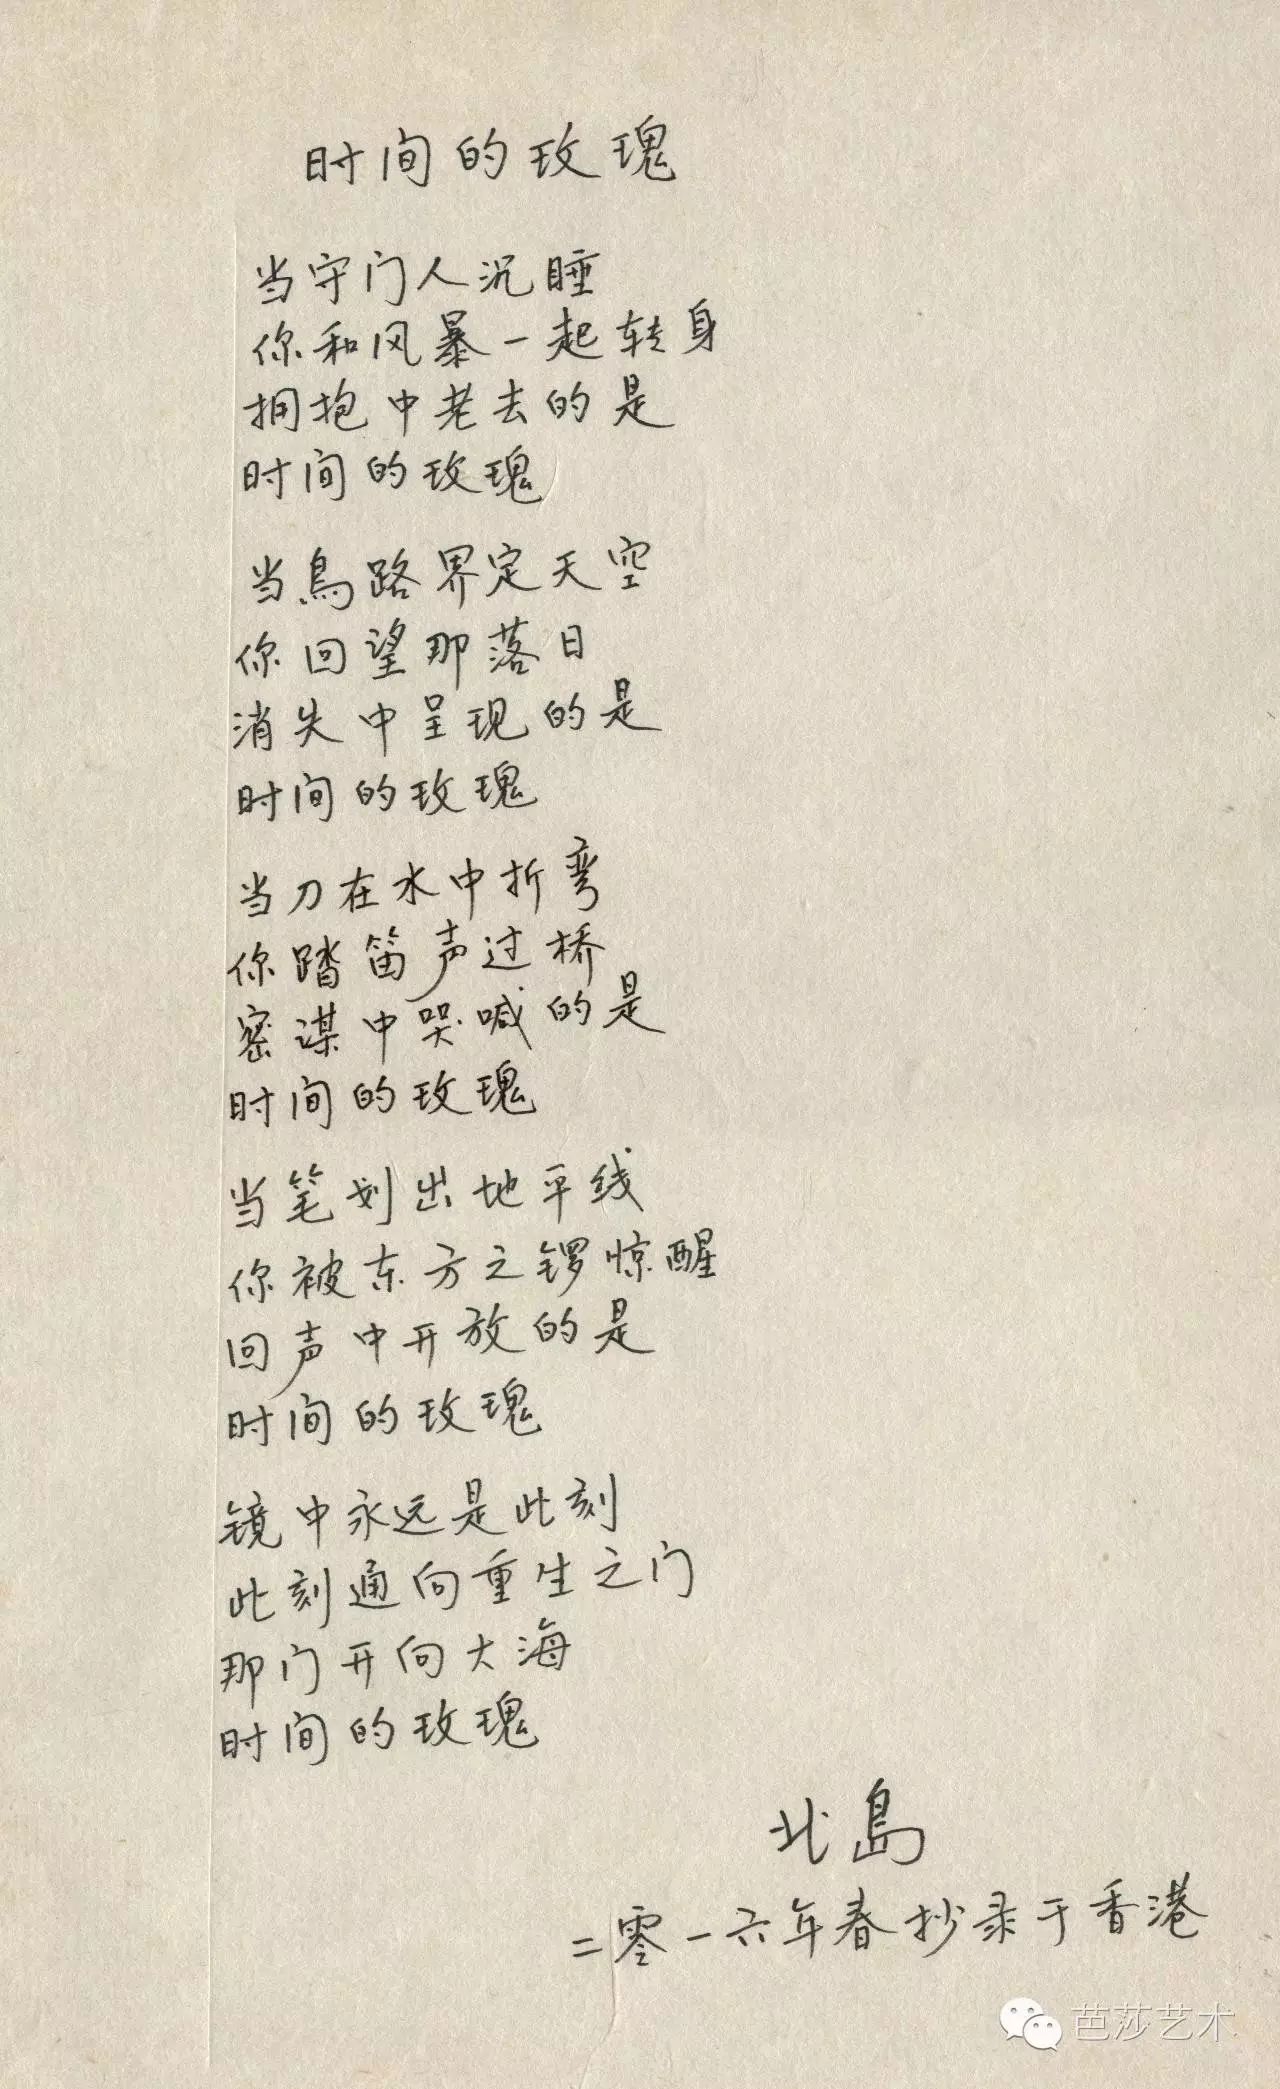 时间的玫瑰
当守门人沉睡
你和风暴一起转身
拥抱中老去的是
时间的玫瑰
当鳥路界定天空
你回望那落日
消失中呈现的是
时间的玫瑰
当刀在水中折弯
你踏笛声过桥
密谋中哭喊的是
时间的玫瑰
当笔划出地平线
你被东方之锣惊醒
回声中开放的是
时间的玫瑰
镜中永远是此刻
此刻通向重生之门
那门开向大海
时间的玫瑰
北島
二零一六年春抄录于香港
芭莎艺术